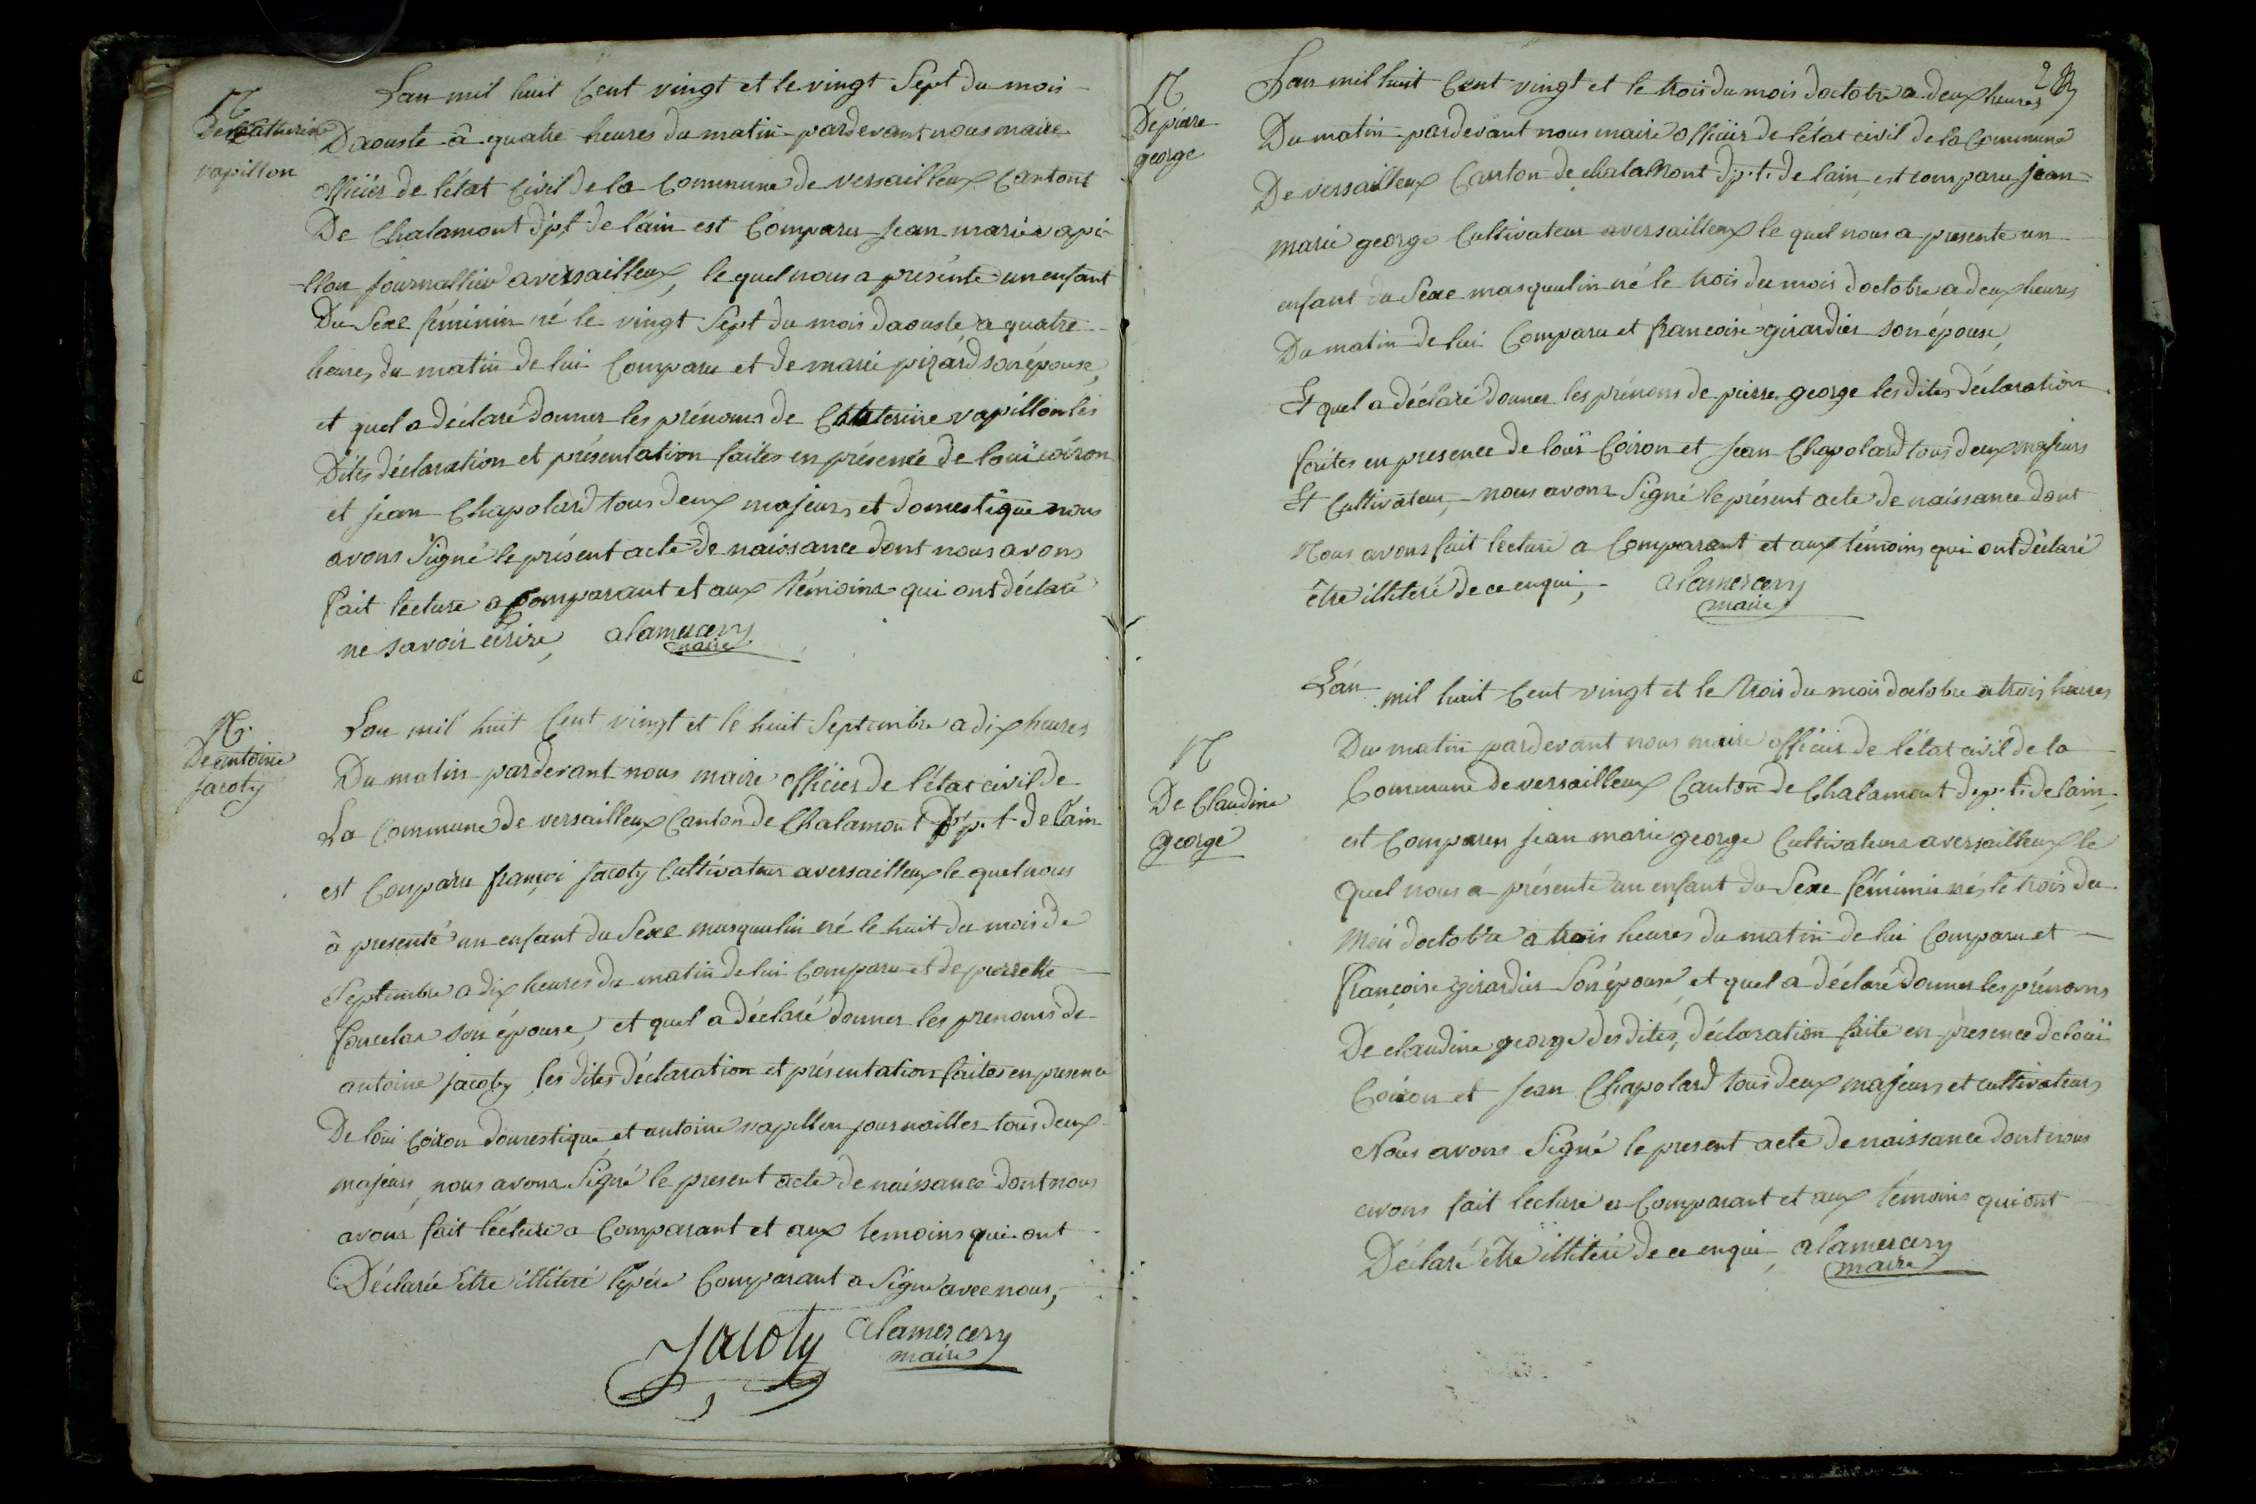 N
De Catherine
vapillon
Lan mil huit Cent vingt et le vingt Sept du mois
Daouste â quatre heures du matin pardevant nous maire
officiér de létat Civil de la Commune de versailleux Cantont
De Chalamont dpt de lain est Comparu jean marie vapi-
llon journallier aversailleux, le quel nous a présenté un enfant
Du Sexe féminin né le vingt Sept du mois daouste a quatre
heures du matin de lui Comparu et de marie pizard son épouse,
et quel a déclaré donner les prénoms de Catterine vapillon les
Dites déclaration et présentation faites en présence de louï coiron
et jean Chapolard tous deux majeurs et domestique nous
avons Signé le présent acte de naissance dont nous avons
fait lecture a Comparant et aux témoins qui ont déclaré
ne savoir écrire, alamercery
maire
N.
De antoine
jacoty
Lan mil huit Cent vingt et le huit Septembre a dix heures
Du matin pardevant nous maire officier de létat civil de
La Commune de versailleux Canton de Chalamont Dp.t de lain
est Comparu françoi jacoty Cultivateur aversailleux le quel nous
à presenté un enfant du Sexe masquulin né le huit du mois de
Septembre a dix heures du matin de lui Comparu et de pierrette
son épouse, et quel a déclaré donner les prenoms de
antoine jacoty les dites déclaration et présentation faites en presence
De loui Coiron domestique et antoine vapillon journailler tous deux
majeurs, nous avons Signé le present acte de naissance dont nous
avons fait lécture a Comparant et aux temoins qui ont
Déclarée être illiteré le pére Comparant a Signé avec nous,
Jacoty alamercery
maire
28
N
De pierre
george
Lan mil huit Cent vingt et le trois du mois doctobre a deux heures
Du matin pardevant nous maire officiér de létat civil de la Commune
De versailleux Canton de chalamont dp.t. de lain, est comparu jean=
marie george Cultivateur aversailleux le quel nous a presenté un
enfant du Sexe masquulin né le trois du mois doctobre a deux heures
Du matin de lui Comparu et francoise girardier son épouse,
Et quel a déclaré donner les prénons de pierre george les dites déclaration
faites en presence de louï Coiron et jean Chapolard tous deux majeurs
Et Cultivateur, nous avons Signé le présent acte de naissance dont
Nous avons fait lecture a Comparant et aux témoins qui ont déclaré
être illiteré de ce enqui, alamercery
maire
N
De Claudine
george
Lán mil huit Cent vingt et le trois du mois doctobre a trois heures
Du matin pardevant nous maire officiér de létat civil de la
Commune de versailleux Canton de Chalamont dep.t. de lain,
est Comparu jean marie george Cultivateur aversailleux le
quel nous a présenté un enfant du Sexe féminin nés le trois du
mois doctobre a trois heures du matin de lui Comparu et
françoise girardier Son épouse, et quel a déclaré donner les prénoms
De claudine george des dites, déclaration faite en présence de louï
Coiron et jean Chapolard tous deux majeurs et cultivateurs
Nous avons Signé le present acte de naissance dont nous
avons fait lecture a Comparant et aux témoins qui ont
Déclaré être illiteré de ce enqui, alamercery
maire